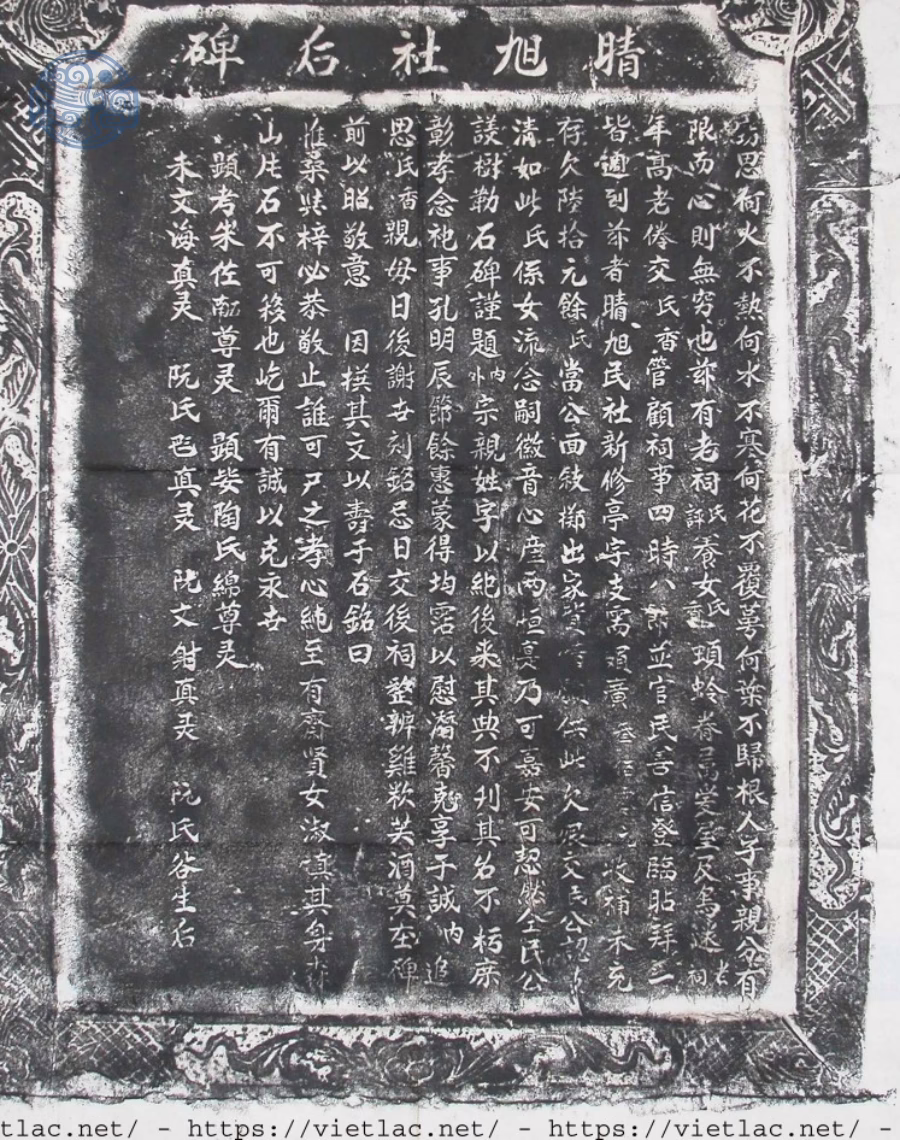 晴旭社后碑
竊思何火不熱何水不寒何花不覆萼何葉不歸根人子事親分有
限而心則無窮也茲有老祠氏評養女氏香蛉眷
年高老倦交氏香管顧祠事四時八節並官民善信登臨貼拜三
皆迺到茲者晴旭民社新修亭宇支需頗廣收補不充
存欠陸拾元餘氏當公面敍擲出家貲供此欠限交民公認
清如此氏係女流念嗣徽音心產兩恒寔乃可嘉安可恝然全民公
議樹勒石碑謹題內外宗親姓字以紀後來其典不刋其名不朽庶
彰孝念祀事孔明辰節餘惠蒙得均霑以慰潛馨享于誠內追
思氏香親母日後謝世刻銘忌日交後祠整辨雞炊芙酒奠在碑
前以昭敬意 因撰其文以壽于石銘曰
惟桑與梓必恭敬止誰可尸之孝心純至有齊賢女淑慎其身
山庑石不可移也屹爾有誠以克永世
顯考朱佐尊灵 顯妣陶氏綿尊灵
朱文海真灵 阮氏真灵 阮文射真灵 阮氏谷生后
https://vietlac.net/ - https://vietlac.net/ - https://vietlac.net/ -